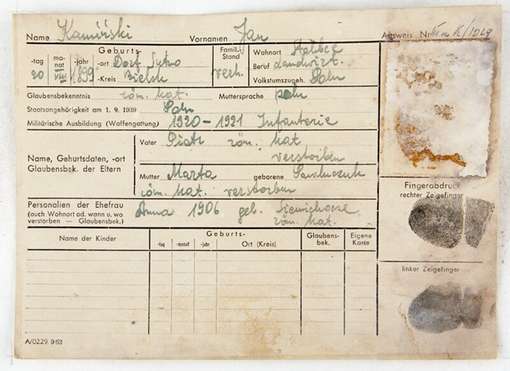 Name Kamiński Vornamen Jan Ausweis Nr.
Geburts- Famil.- Stand Wohnort
-tag mo- nat -jahr -ort Dorf verh. Beruf Landwirt.
20 VIII 1899 -Kreis Bielsk Volkstumszugeh. Poln
Glaubensbekenntnis röm. kat. Muttersprache poln
Staatsangehörigkeit am 1. 9. 1939 Poln
Militärische Ausbildung (Waffengattung) 1920-1921 Infanterie
Name, Geburtsdaten, -ort
Glaubensbek. der Eltern
Vater Piotr röm. kat
verstorben
Mutter Marta geborene
röm. kat. verstorben
Personalien der Ehefrau Anna 1906 geb.
(auch Wohnort od. wann u. wo
verstorben — Glaubensbek.) röm. kat.
Name der Kinder Geburts- Glaubens- bek. Eigene Karte
-tag -monat -jahr Ort (Kreis)
Fingerabdruck
rechter Zeigefinger
linker Zeigefinger